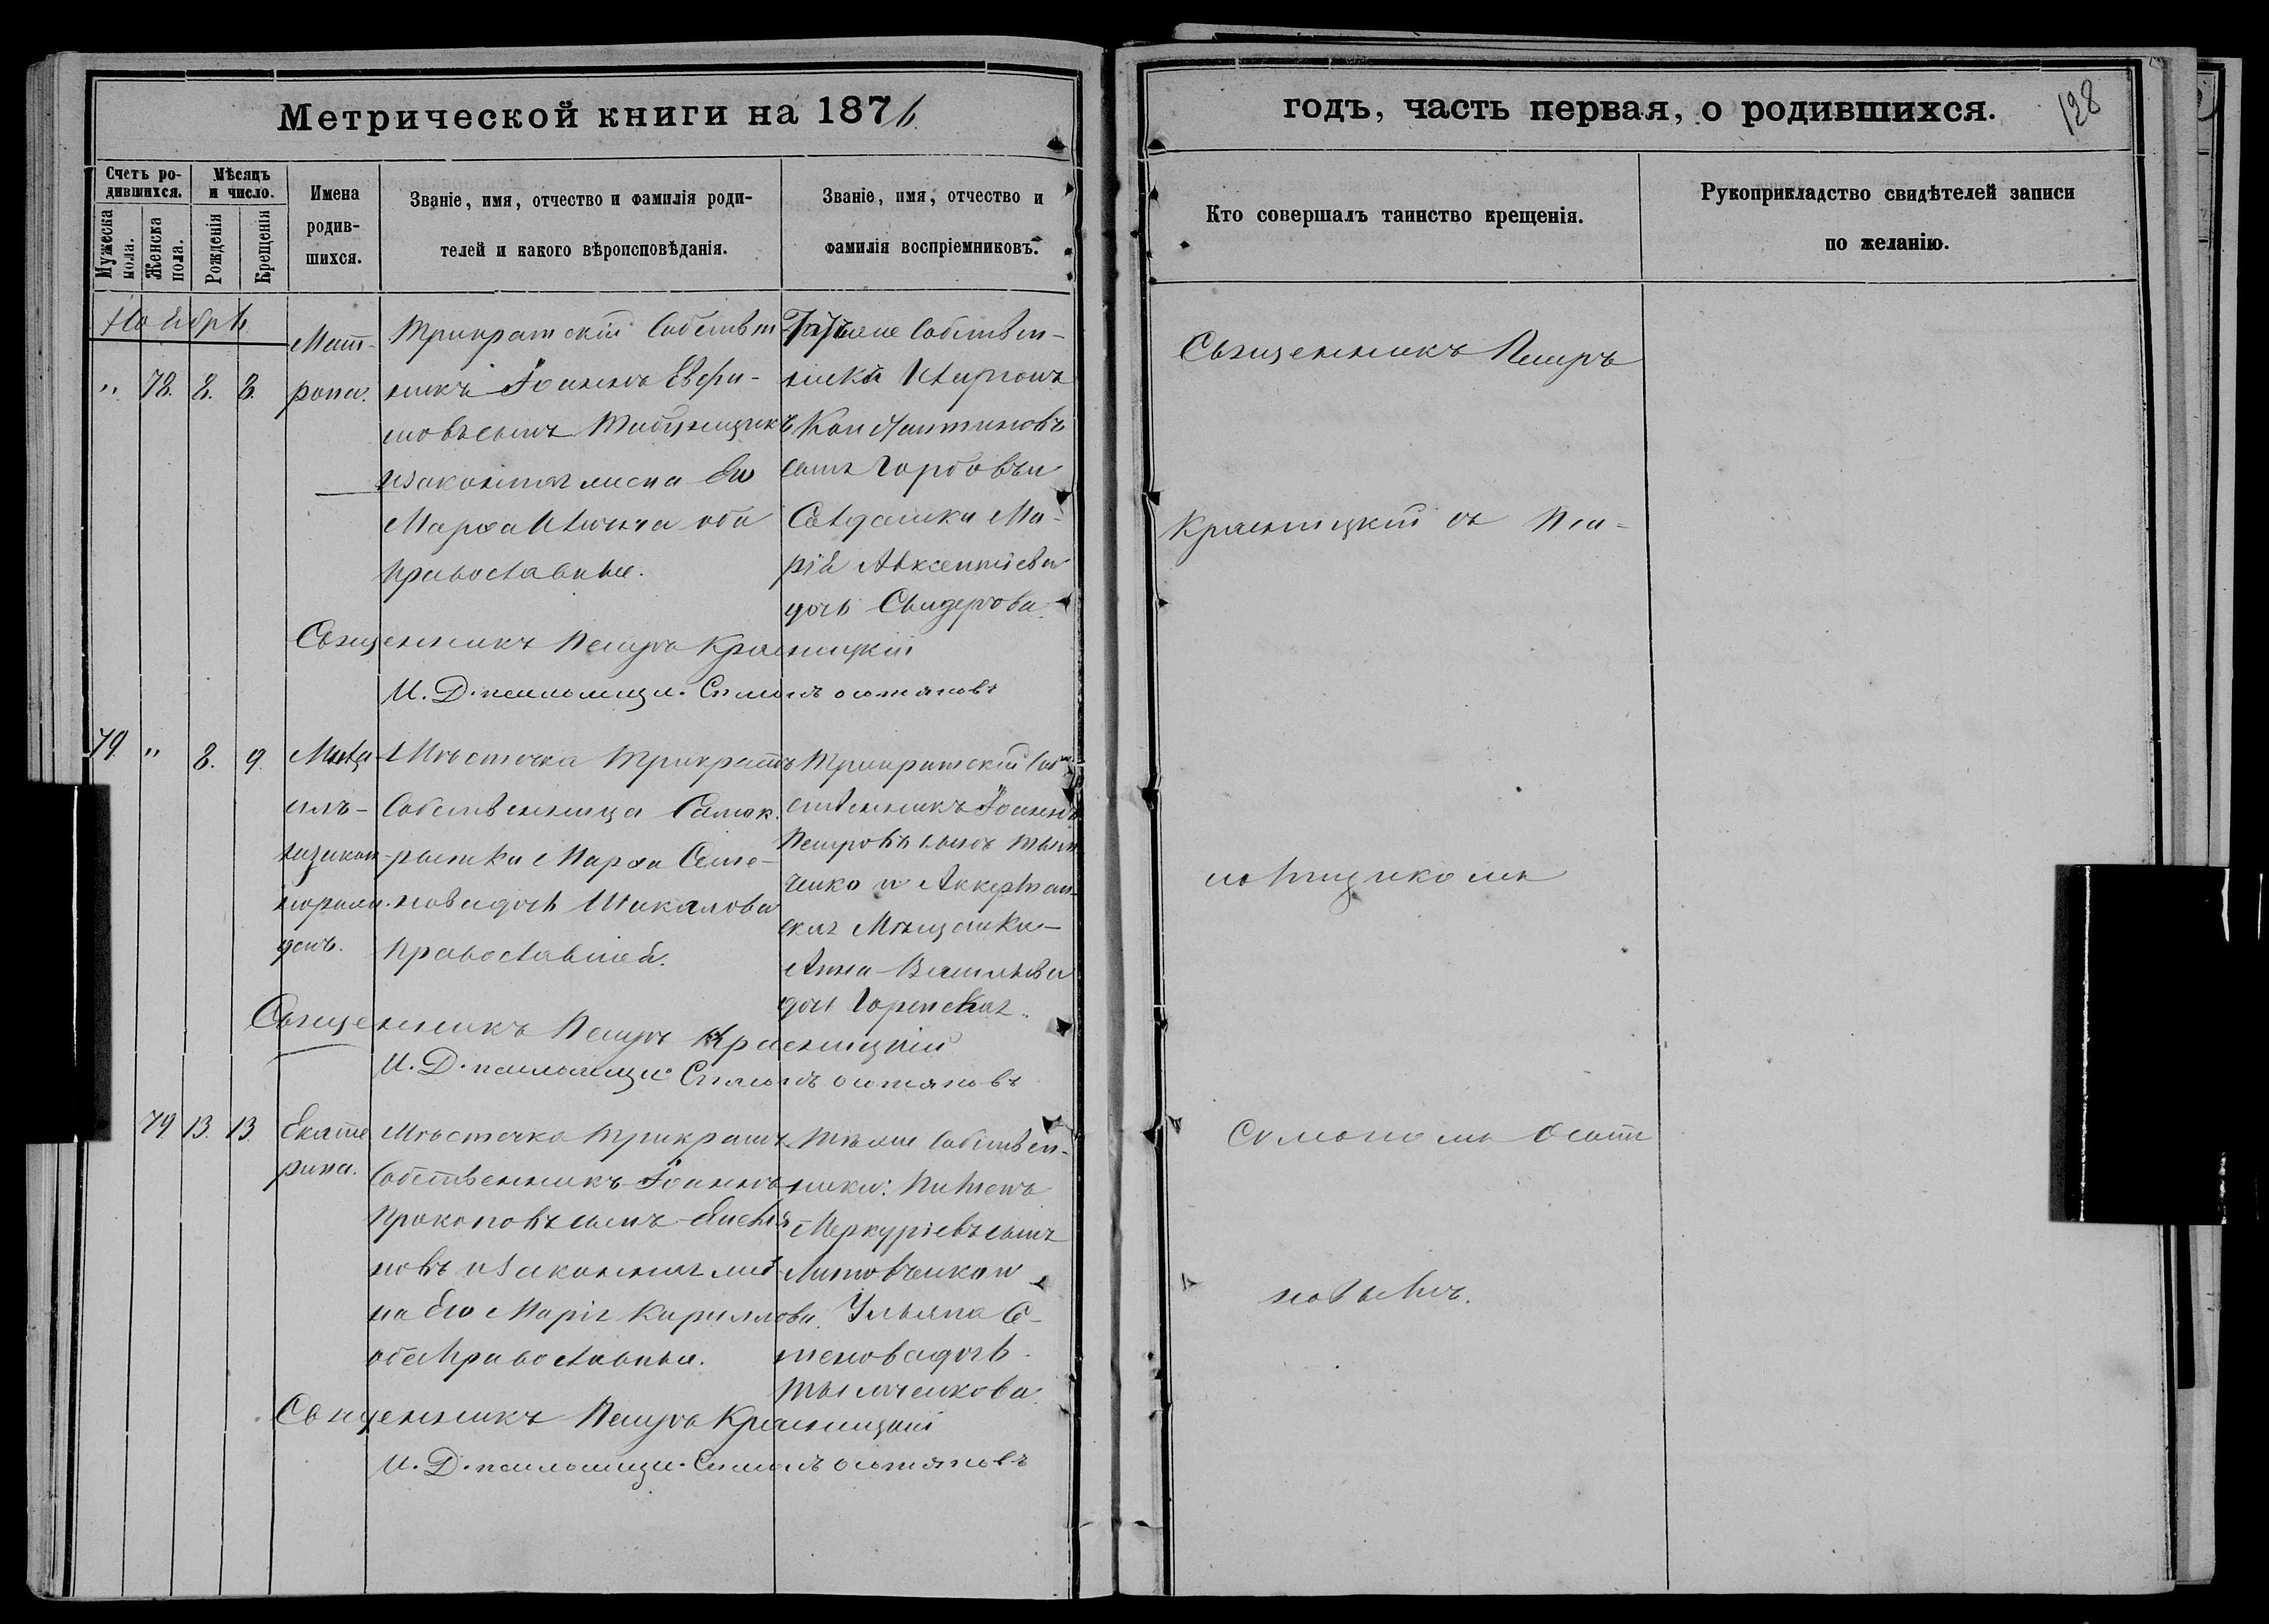 Метрической книги на 1876.
Счетъ ро-
дившихся.
Мужеска
пола.
Женска
пола.
Мѣсяцъ
и число.
Рожденія
Крещенія
Имена
родив-
шихся.
Званіе, имя, отчество и фамилія роди-
телей и какого вѣроисповѣданія.
Званіе, имя, отчество и
фамилія воспріемниковъ.
Ноябрь
" 78. 8. 8.
Мат-
рона.
Трикратскій Собствен
никъ Іоаннъ
новъ сынъ Табунщикъ
и законная жена Его
Марѳа оба
православные.
Тѣже Собствен-
ники
Константиновъ
сынъ Горбовъ и
Солдатка Ма-
рія Авксентіева
дочь
Священникъ Петръ Красницкій
И. Д. псаломщи. Симонъ Остяновъ
79. " 8. 9.
Миха
илъ-
незакон
норож
денъ.
Мѣстечка Трикратъ
Собственница
Марѳа Семе-
нова дочь Шикалова
православной.
Трикратскій Соб
ственникъ Іоаннъ
Петровъ сынъ Тым
ченко и Аккерман-
ская Мѣщанка
Анна Васильева
дочь
Священникъ Петръ Красницкій
И. Д. псаломщи. Симонъ Остяновъ
79. 13. 13.
Екате
рина.
Мѣстечка Трикратъ
Собственникъ Іоаннъ
Прокоповъ сынъ
новъ и законная же
на Его Марія Кириллова
оба Православные.
Тѣже Собствен-
ники:
Меркуріевъ сынъ
Литовченко и
Ульяна Се-
менова дочь
Тымченкова.
Священникъ Петръ Красницкій
И. Д. псаломщи. Симонъ Остяновъ
годъ, часть первая, о родившихся.
128
Кто совершалъ таинство крещенія.
Рукоприкладство свидѣтелей записи
по желанію.
Священникъ Петръ
Красницкій съ Пса-
ломщикомъ
Симономъ Остя
новымъ.